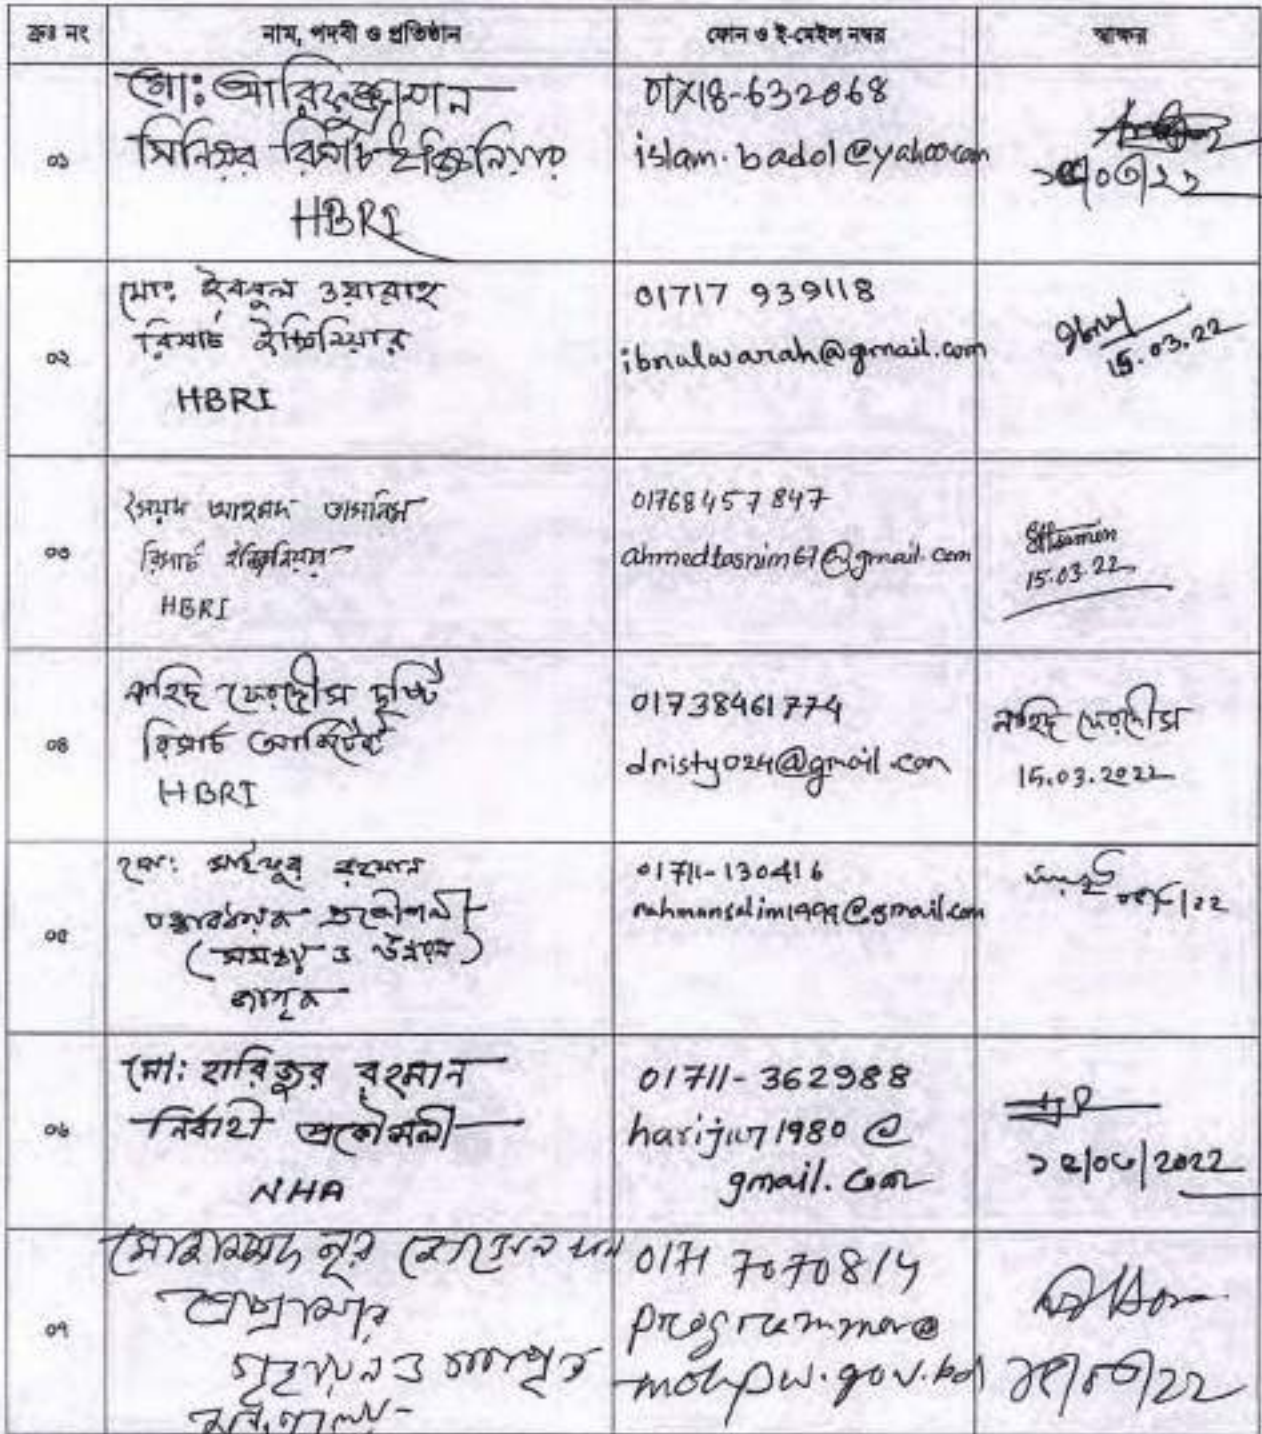 ক্রঃ নং নাম, পদবী ও প্রতিষ্ঠান ফোন ও ই-মেইল নম্বর স্বাক্ষর
০১
মো: আরিফুজ্জামান
সিনিয়র রিসার্চ ইঞ্জিনিয়ার
HBRI
01718-632068
islam.badol@yahoo.com
০২
মোঃ ইবনুল ওয়ারাহ
রিসার্চ ইঞ্জিনিয়ার
HBRI
01717 939118
ibnalwarah@gmail.com
15.03.22
০৩
সৈয়দ আহমদ তাসনিম
রিসার্চ ইঞ্জিনিয়ার
HBRI
01768457847
ahmedtasnim67@gmail.com
15.03.22
০৪
নাহিদ ফেরদৌস দৃষ্টি
রিসার্চ আর্কিটেক্ট
HBRI
01738461774
dristy024@gmail.com
নাহিদ ফেরদৌস
15.03.2022
০৫
মো: সাইফুর রহমান
তত্ত্বাবধায়ক প্রকৌশলী
(সমন্বয় ও উন্নয়ন)
জাগৃক
01711-130416
rahmanslim1999@gmail.com
০৬
মো: হারিজুর রহমান
নির্বাহী প্রকৌশলী
NHA
01711-362988
harijur1980@
gmail.com
১৫/০৩/2022
০৭
মোহাম্মদ নূর হোসেন খান
প্রোগ্রামার
গৃহায়ন ও গণপূর্ত
মন্ত্রণালয়
0171 7070814
programmer@
mohpw.gov.bd
১৫/০৩/22